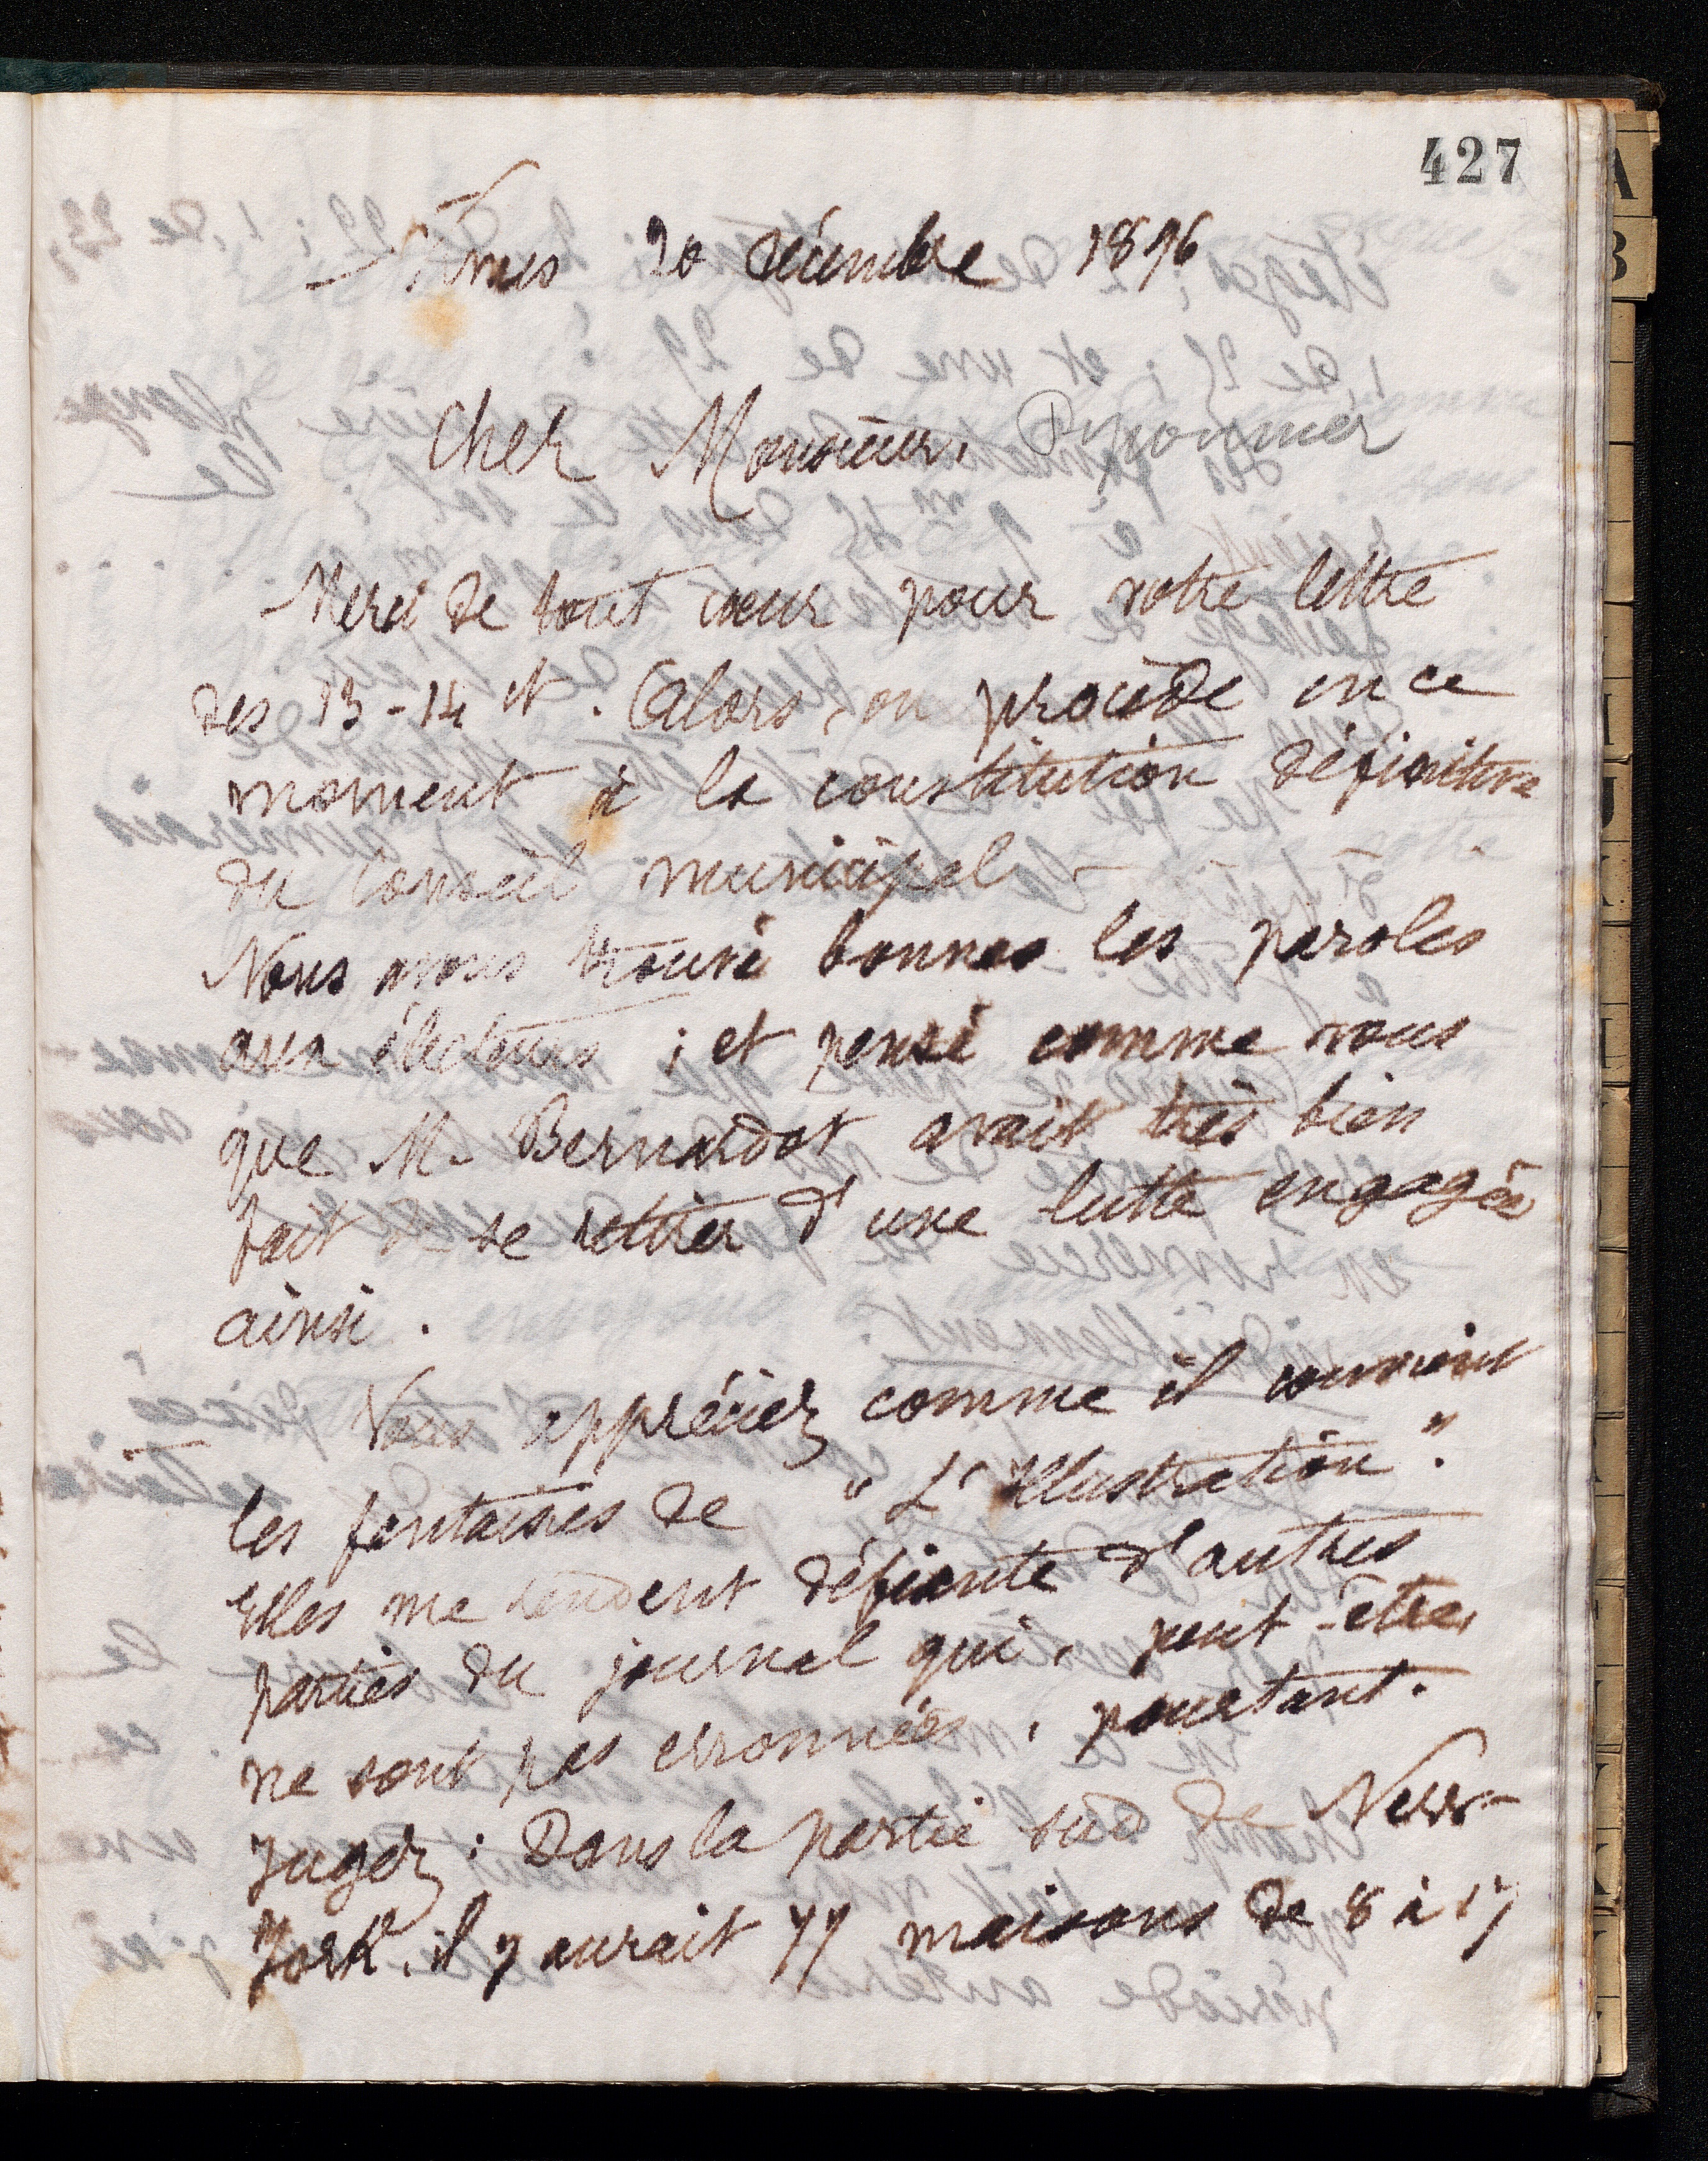 427
Nîmes 20 décembre 1896
Cher Monsieur, Pyponnier
Merci de tout cœur pour votre lettre
des 13-14 ct. Alors, on procède en ce
moment à la constitution définitive
du Conseil municipal -
Nous avons trouvé bonnes les paroles
aux électeurs ; et pensé comme vous
que M. Bernardot avait très bien
fait de se retirer d'une lutte engagée
ainsi.
Vous appréciez comme il convient
les fantaisies de "L'Illustration".
Elles me rendent défiante d'autres
parties du journal qui, peut-être,
ne sont pas erronées, pourtant.
Jugez : Dans la partie sud de New-
York, il y aurait 77 maisons de 8 à 17